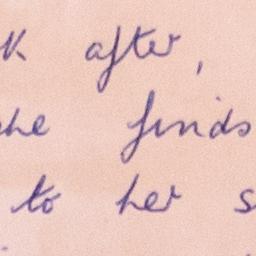 after,
she finds
to her